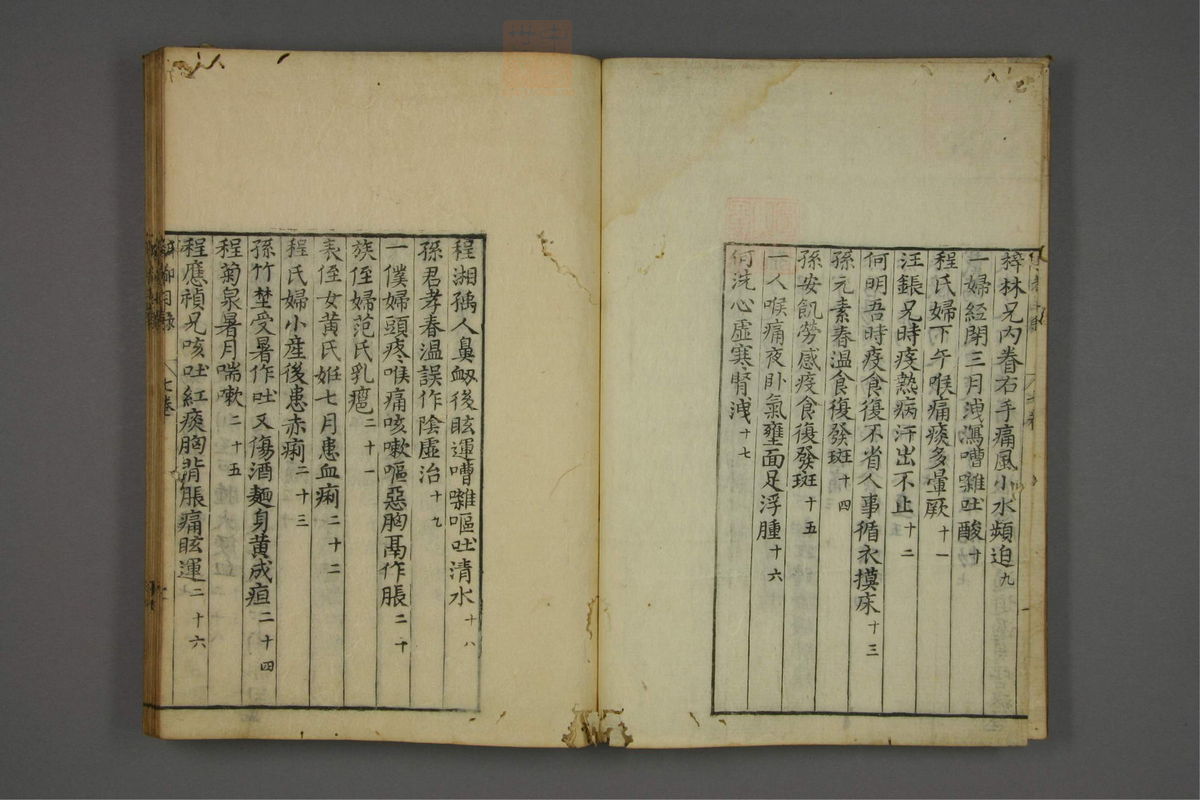 稺林兄內眷右手痛風小水頻迫九
一婦經閉三月洩瀉嘈雜吐酸十
程氏婦下午喉痛痰多暈厥十一
汪鋹兄時疫熱病汗出不止十二
何明吾時疫食復不省人事循衣摸床十三
孫元素春溫食復發斑十四
孫安飢勞感疫食復發斑十五
一人喉痛夜臥氣壅面足浮腫十六
何洗心虛寒腎洩十七
程湘孺人鼻衄後眩運嘈雜嘔吐清水十八
孫君孝春溫誤作陰虛治十九
一僕婦頭疼喉痛咳嗽嘔惡胸鬲作脹二十
族侄婦范氏乳癰二十一
表侄女黃氏姙七月患血痢二十二
程氏婦小產後患赤痢二十三
孫竹埜受暑作吐又傷酒麵身黃成疸二十四
程菊泉暑月喘嗽二十五
程應禎兄咳吐紅痰胸背脹痛眩運二十六